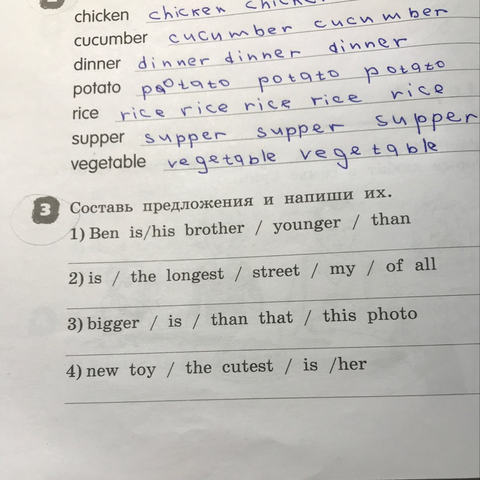 chicken chicken
cucumber cucumber cucumber
dinner dinner dinner dinner
potato potato potato potato
rice rice rice rice rice rice
supper supper supper supper
vegetable vegetable vegetable
3 Составь предложения и напиши их.
1) Ben is/his brother / younger / than
2) is / the longest / street / my / of all
3) bigger / is / than that / this photo
4) new toy / the cutest / is /her